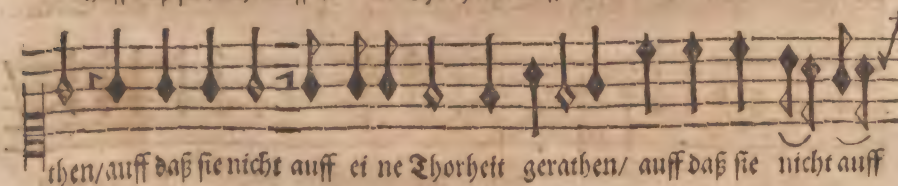 then/auff daß sie nicht auff ei ne Thorheit gerathen/ auff daß sie nicht auff